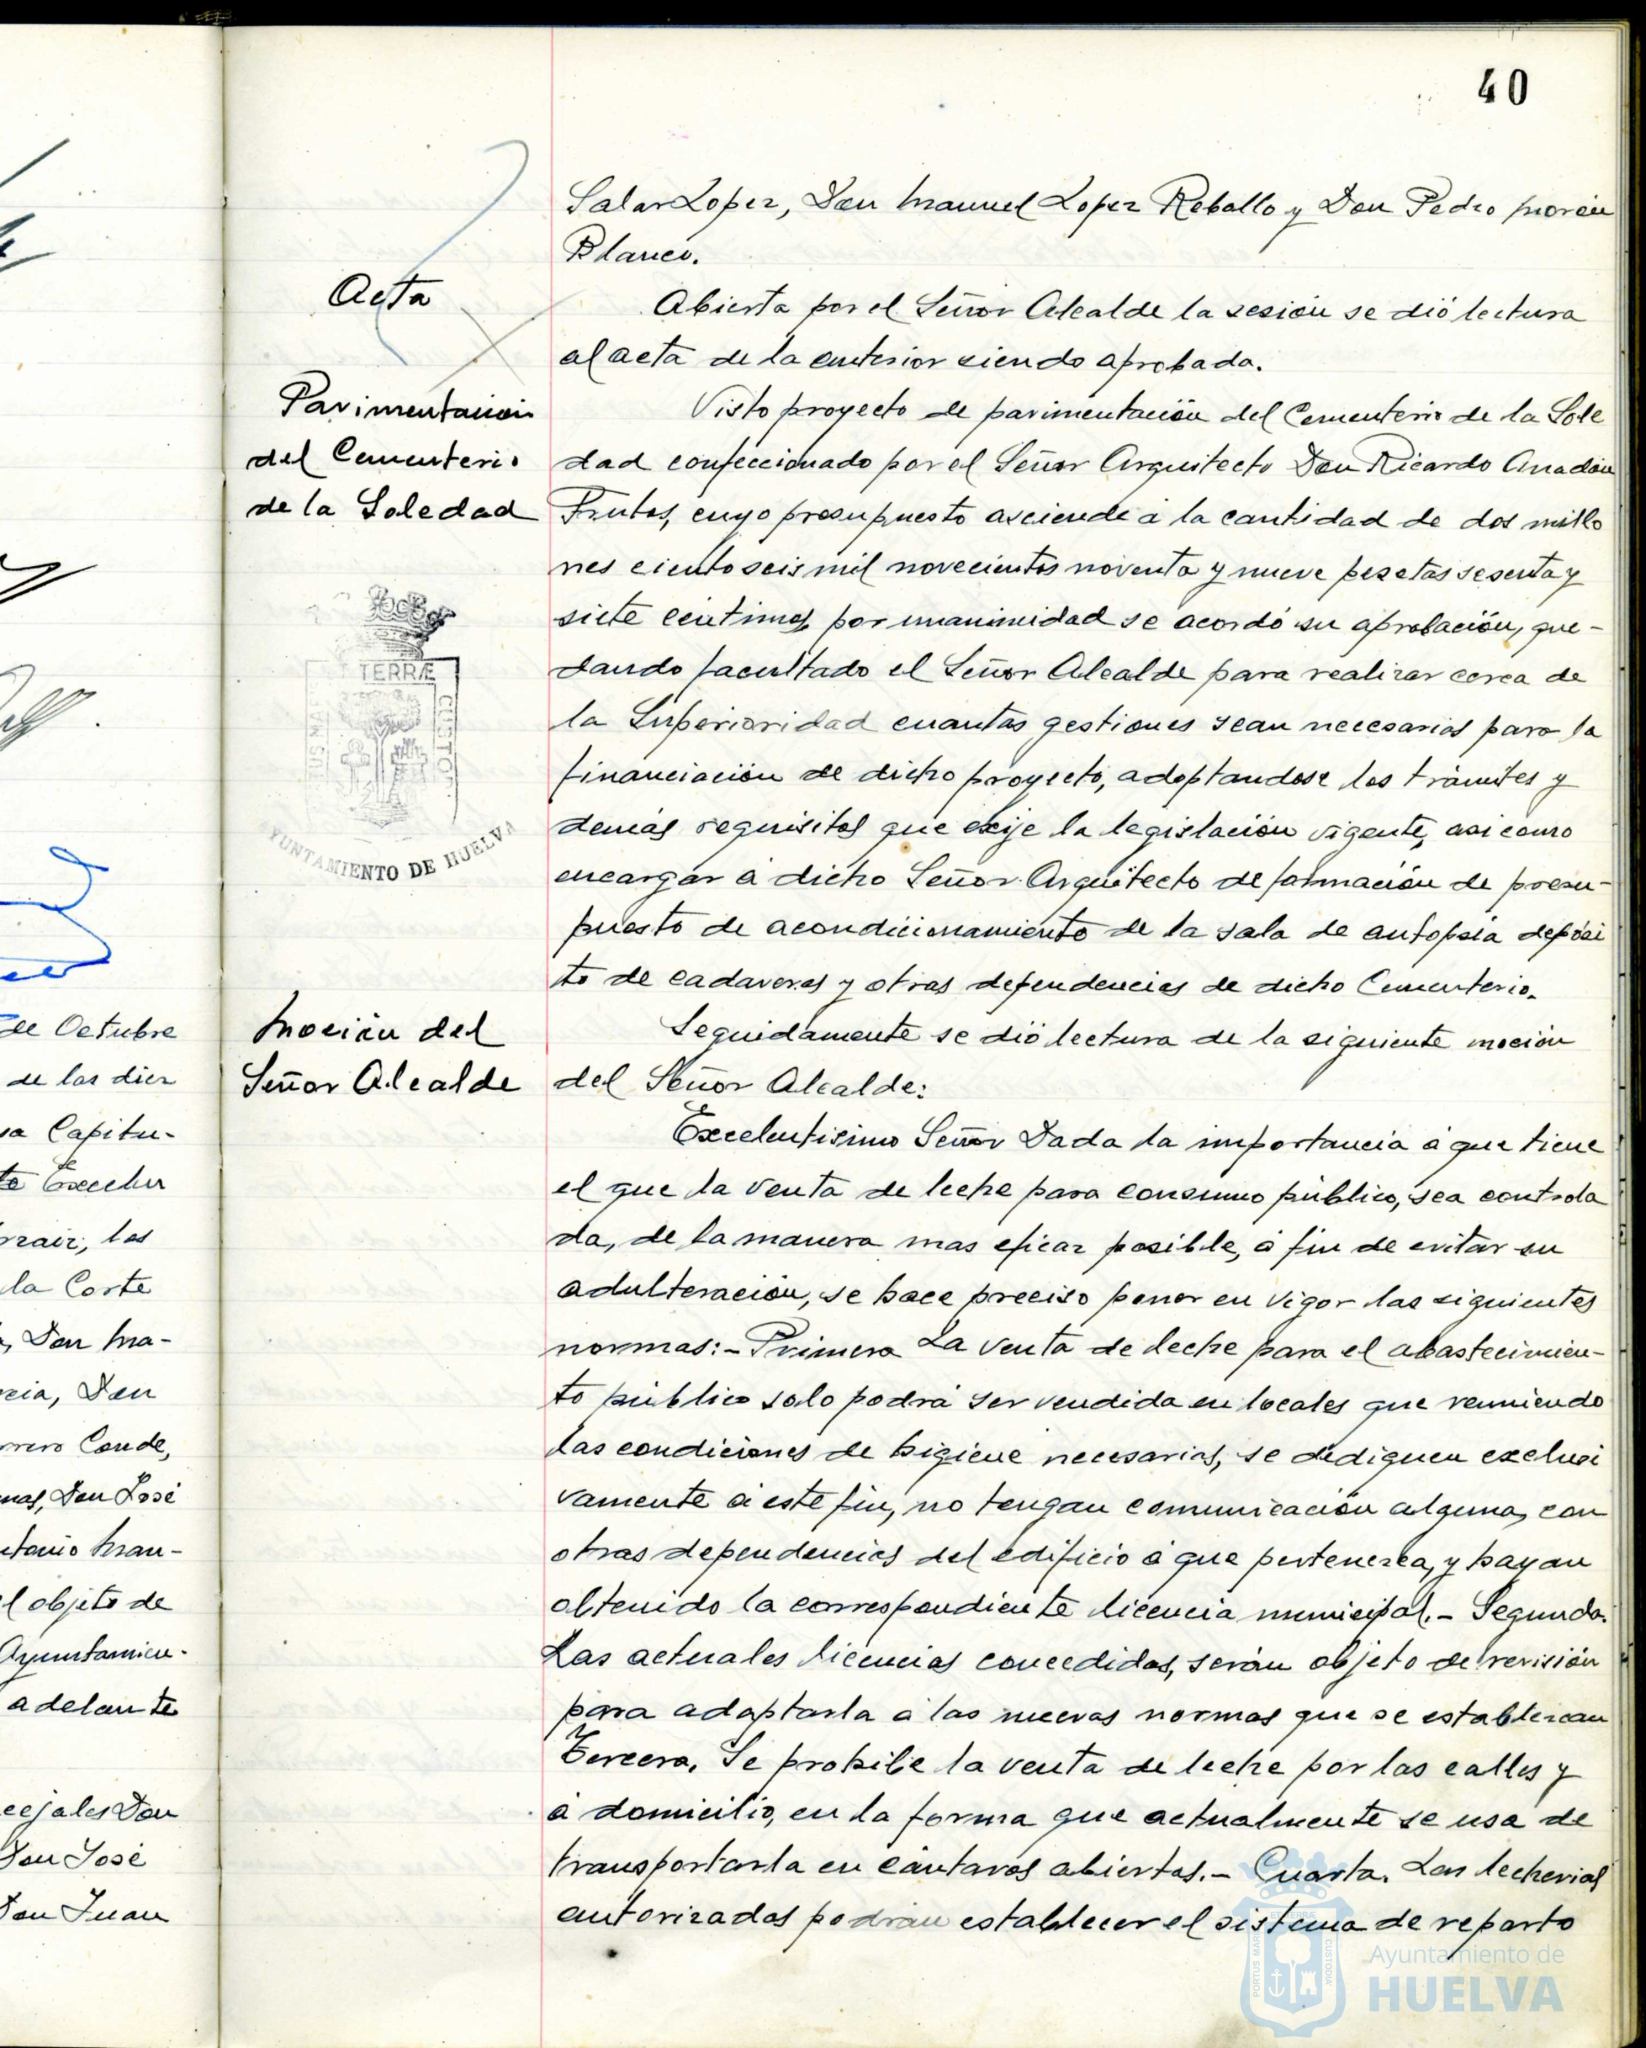 40
Salas Lopez, Don Manuel Lopez Rebollo y Don Pedro Morón
Blanco.
Acta
Abierta por el Señor Alcalde la sesión se dió lectura
al acta de la anterior siendo aprobada.
Pavimentación
del Cementerio
de la Soledad
Visto proyecto de pavimentación del Cementerio de la Sole
dad confeccionado por el Señor Arquitecto Don Ricardo Anadón
Frutos, cuyo presupuesto asciende á la cantidad de dos millo
nes ciento seis mil novecientos noventa y nueve pesetas sesenta y
siete centimos por unanimidad se acordó su aprobación, que-
dando facultado el Señor Alcalde para realizar cerca de
la Superioridad cuantas gestiones sean necesarias para la
financiación de dicho proyecto, adoptandose los trámites y
demás requisitos que exije la legislación vigente, asi como
encargar á dicho Señor Arquitecto de formación de presu-
puesto de acondicionamiento de la sala de autopsia depósi
to de cadaveres y otras dependencias de dicho Cementerio.
TERRÆ
AYUNTAMIENTO DE HUELVA
Moción del
Señor Alcalde
Seguidamente se dió lectura de la siguiente moción
del Señor Alcalde:
Excelentisimo Señor Dada la importancia á que tiene
el que la venta de leche para consumo público, sea controla
da, de la manera mas eficaz posible, á fin de evitar su
adulteración, se hace preciso poner en vigor las siguientes
normas:- Primera La venta de leche para el abastecimien-
to público solo podrá ser vendida en locales que reuniendo
las condiciones de higiene necesarias, se dediquen exclusi
vamente á este fin, no tengan comunicación alguna, con
otras dependencias del edificio á que pertenezca, y hayan
obtenido la correspondiente licencia municipal.- Segunda.
Las actuales licencias concedidas, serán objeto de revisión
para adaptarla á las nuevas normas que se establezcan
Tercera. Se prohibe la venta de leche por las calles y
á domicilio, en la forma que actualmente se usa de
transportarla en cántaros abiertos.- Cuarta. Las lecherias
autorizadas podrán establecer el sistema de reparto
de Octubre
de las diez
sa Capitu-
Excelen
los
la Corte
Don Ma-
Don
Conde,
Don José
Man-
el objeto de
Ayuntamien-
adelante
Don
Don José
Don Juan
PORTUS MARIS
ET TERRE
CUSTODIA
Ayuntamiento de
HUELVA